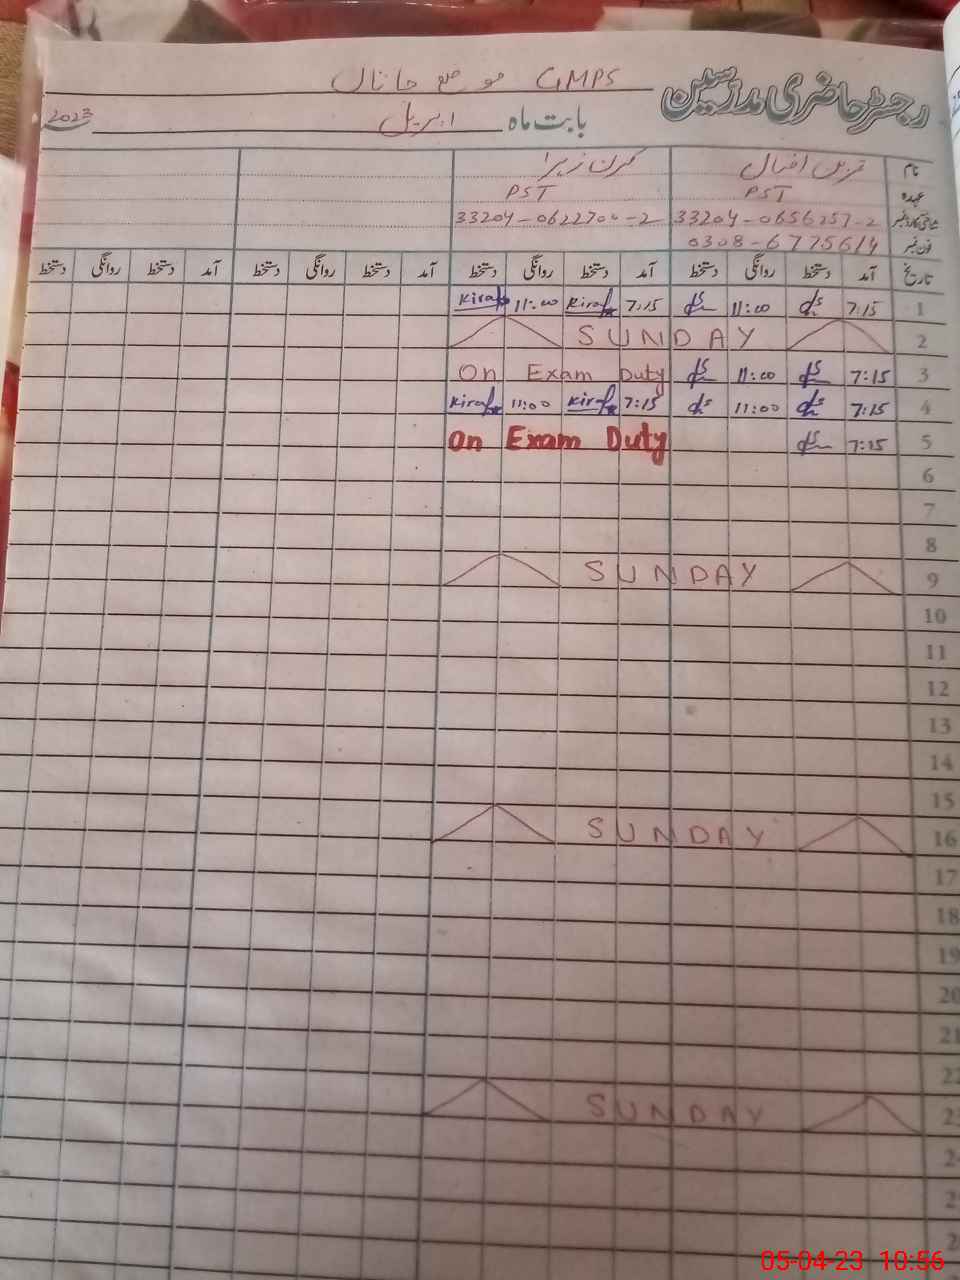 رجسٹر حاضری مدرسین
GMPS موضع جانال
بابت ماہ اپریل 2023
نام اقبال کرن زہرا
عہدہ PST PST
شناختی کارڈ نمبر 33204-0656257-2 33204-0622700-2
فون نمبر 0308-6775614
تاریخ آمد دستخط روانگی دستخط آمد دستخط روانگی دستخط آمد دستخط روانگی دستخط آمد دستخط روانگی دستخط
1 7:15 11:00 7:15 Kiran 11:00 Kiran
2 SUNDAY
3 7:15 11:00 On Exam Duty
4 7:15 11:00 7:15 Kiran 11:00 Kiran
5 7:15 On Exam Duty
6
7
8
9 SUNDAY
10
11
12
13
14
15
16 SUNDAY
17
18
19
20
21
22
23 SUNDAY
24
25
05-04-23 10:56